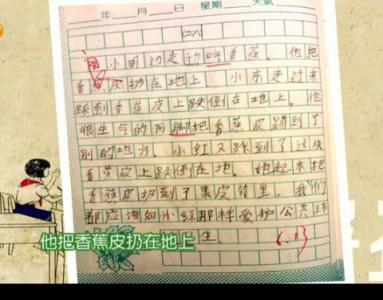 年 月 日 星期 天氣
(六)
小明边走边吃香蕉。他把
香蕉皮扔在地上。小东走过来
踩到香蕉皮上跌倒在地上。他
很生气的用脚把香蕉皮踢到了
别的地方。小红又踩到了这块
香蕉皮上跌倒在地。她起来把
香蕉皮扔到了果皮箱里。我们
都应该向小红那样爱护公共环
生。
他把香蕉皮扔在地上